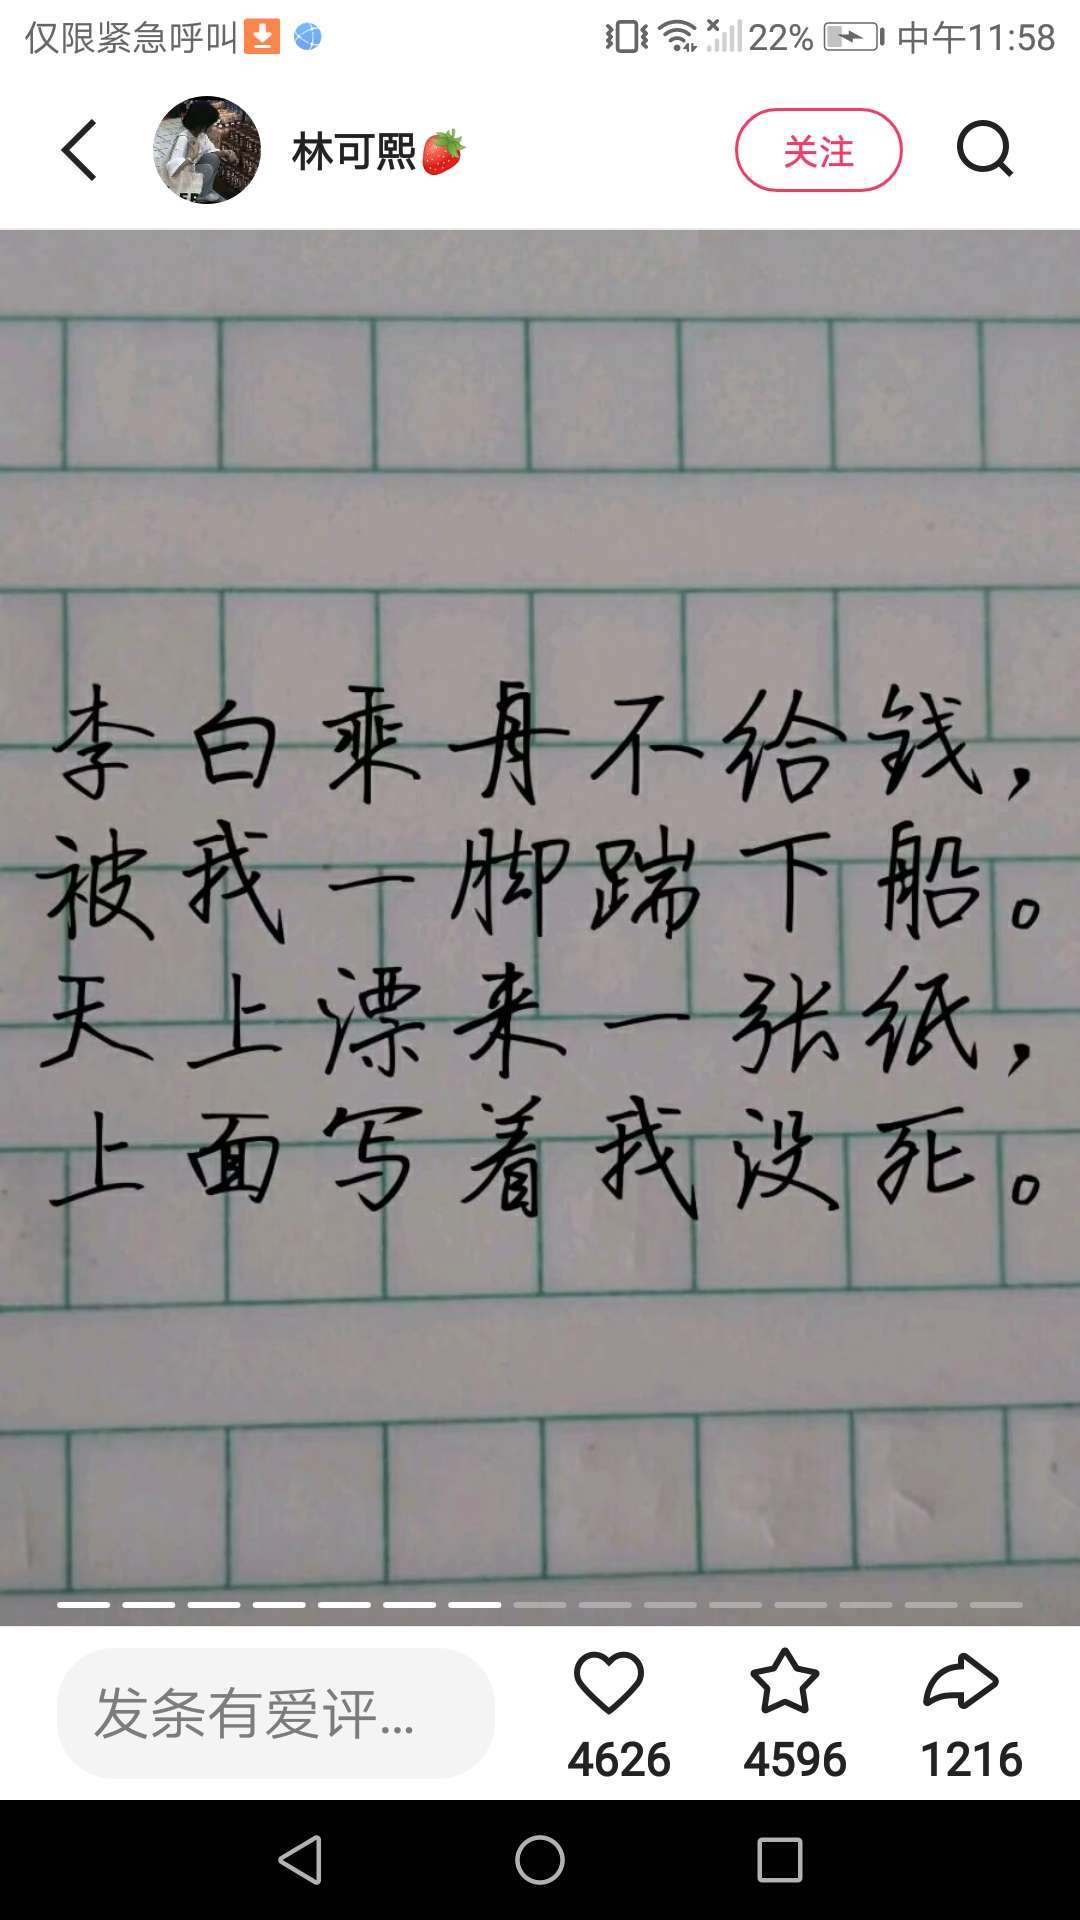 仅限紧急呼叫 22% 中午11:58
林可熙 关注
李白乘舟不给钱，
被我一脚踹下船。
天上漂来一张纸，
上面写着我没死。
发条有爱评...
4626 4596 1216